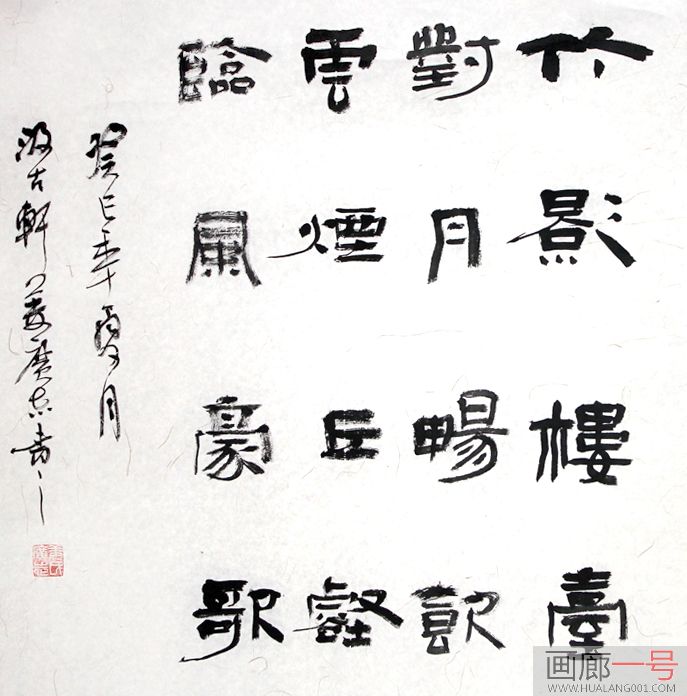 竹影樓臺
對月暢飲
雲煙丘壑
臨風豪歌
癸巳年夏月
汲古軒
廣志書
画廊一号
WWW.HUALANG001.COM